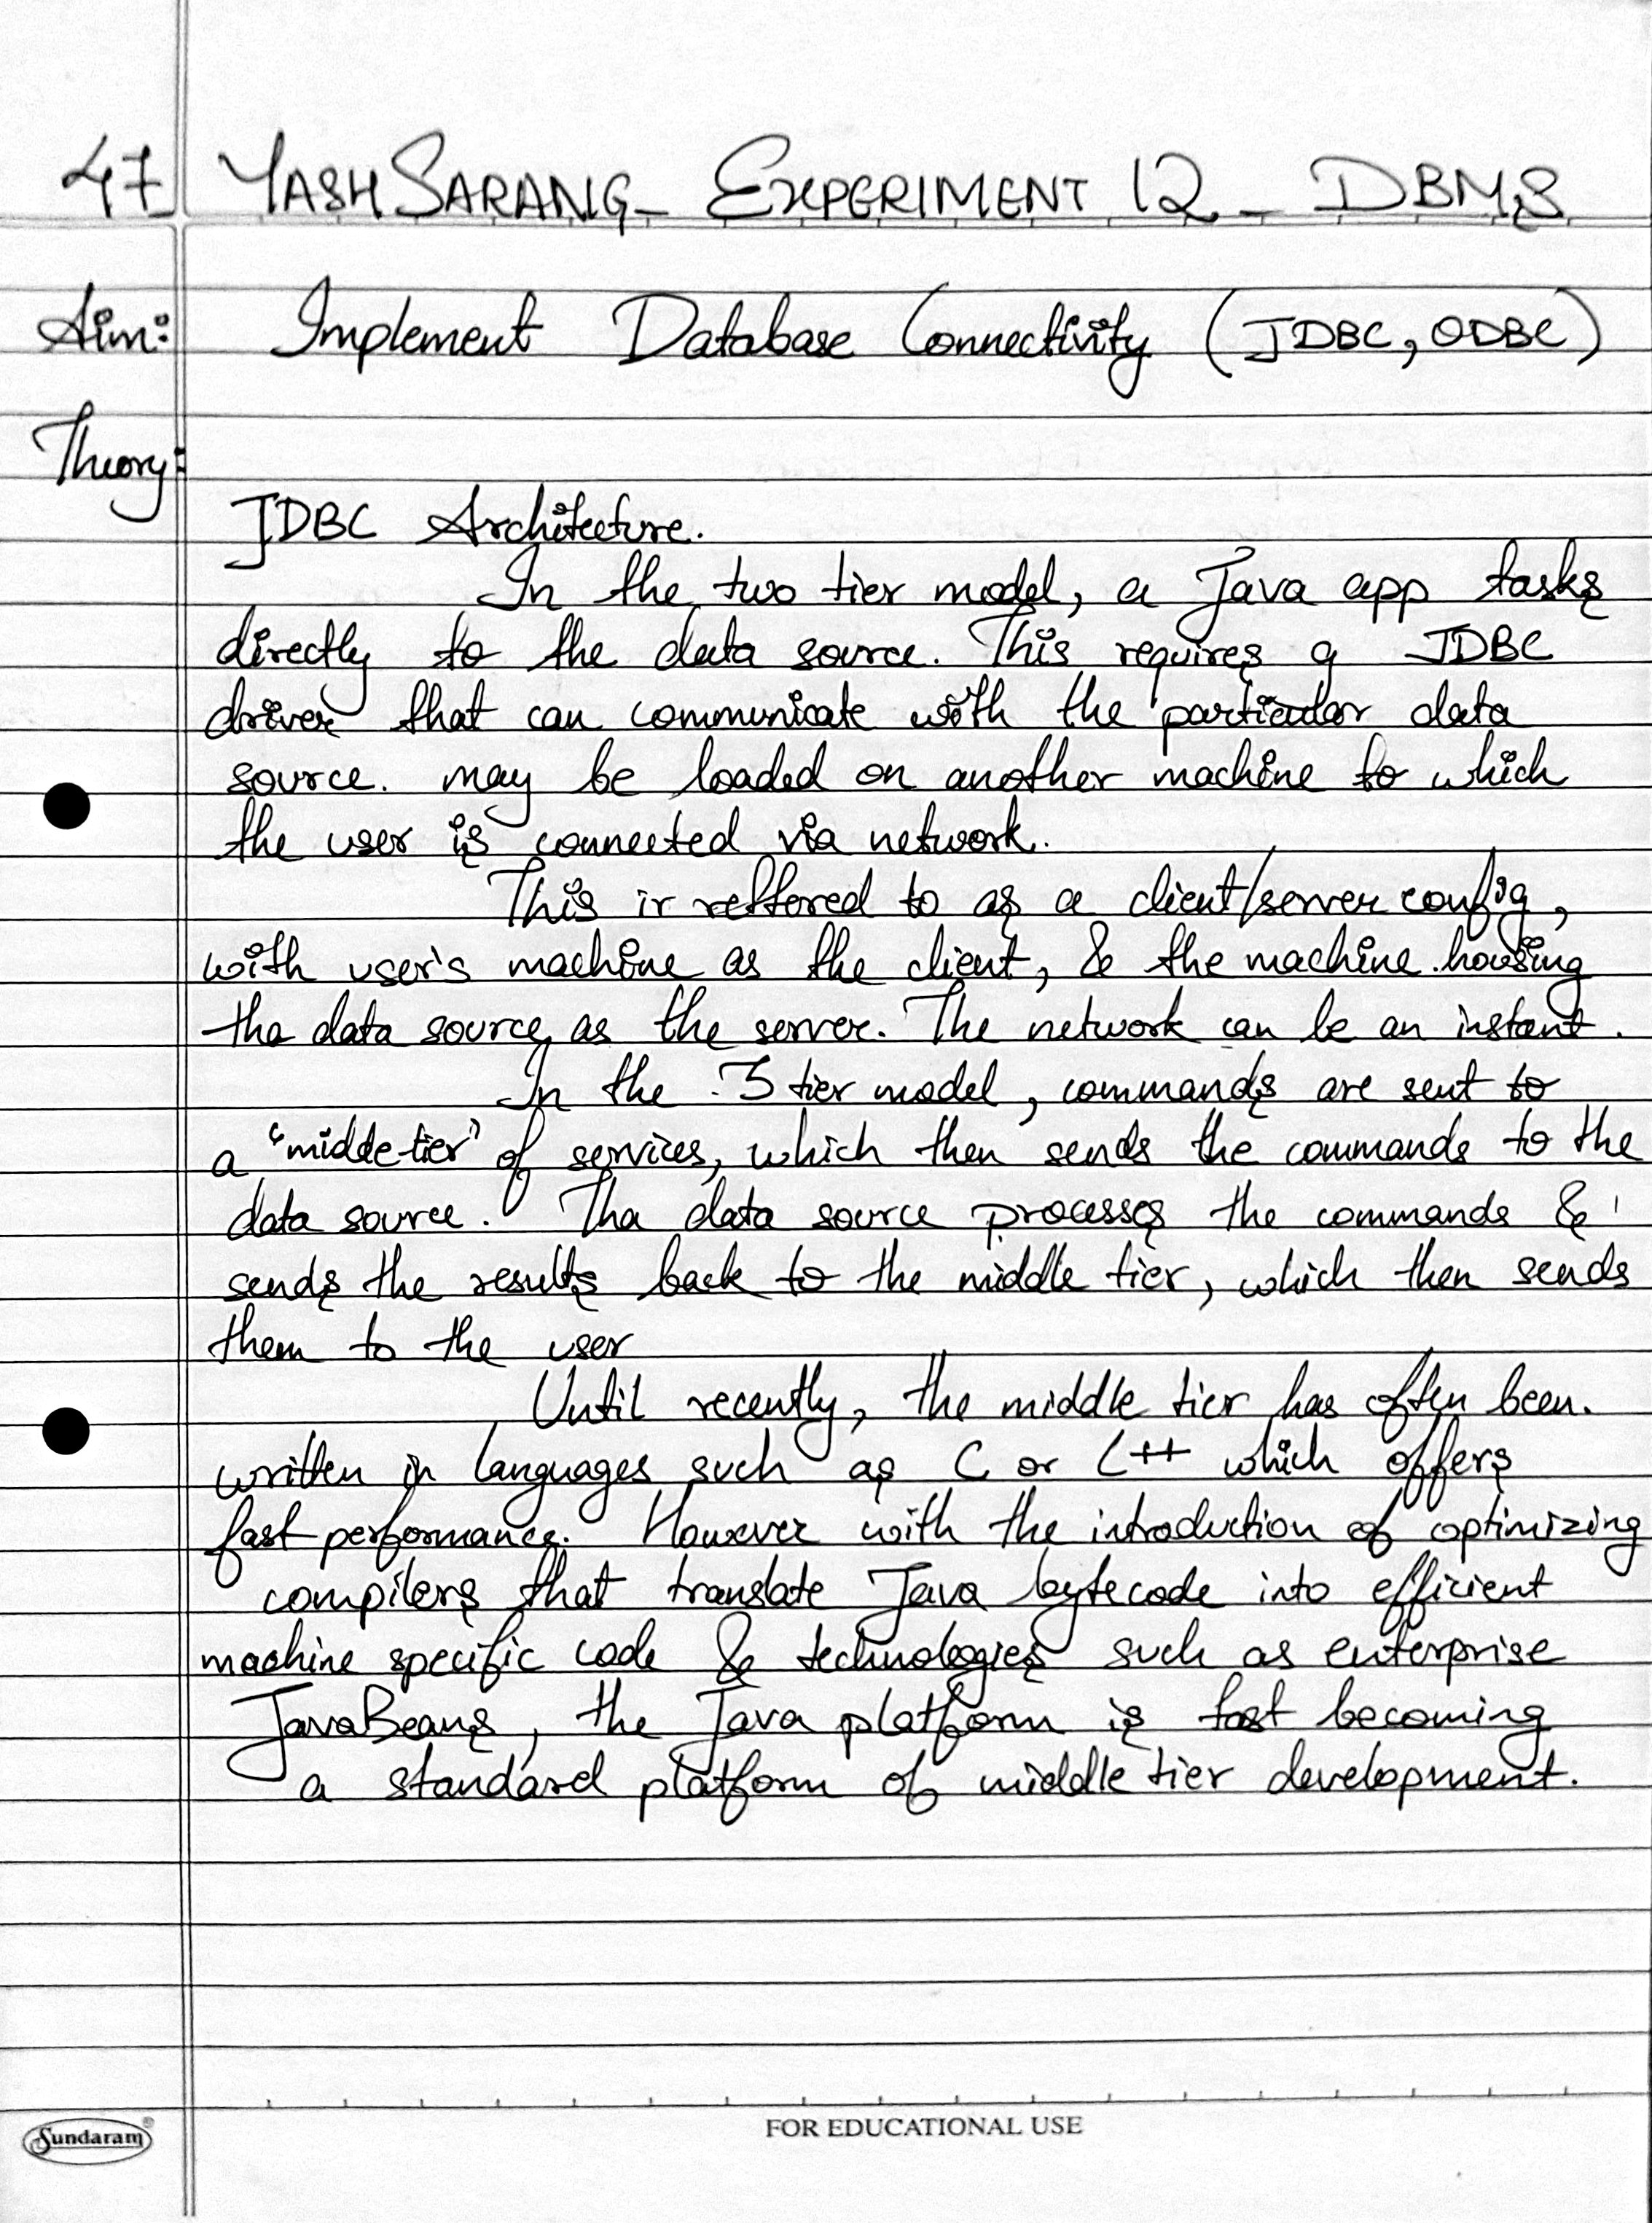 47 YASH SARANG_ EXPERIMENT 12_ DBMS
Aim: Implement Database Connectivity (JDBC, ODBC)
Theory:
JDBC Architecture.
In the two tier model, a Java app tasks
directly to the data source. This requires a JDBC
driver that can communicate with the particular data
source. may be loaded on another machine to which
the user is connected via network.
This is reffered to as a client/server config,
with user's machine as the client, & the machine housing
tha data source as the server. The network can be an instant.
In the 3 tier model, commands are sent to
a "midde tier" of services, which then sends the commands to the
data source. Tha data source processes the commands &
sends the results back to the middle tier, which then sends
them to the user
Until recently, the middle tier has often been.
written in languages such as C or C++ which offers
fast performance. However with the introduction of optimizing
compilers that translate Java bytecode into efficient
machine specific code & technologies such as enterprise
JavaBeans, the Java platform is fast becoming
a standard platform of middle tier development.
FOR EDUCATIONAL USE
Sundaram®